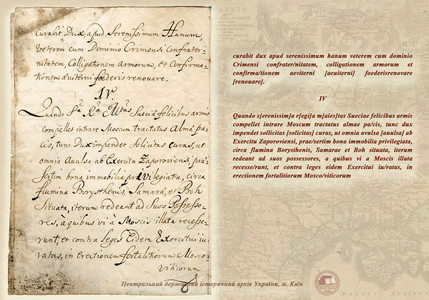 curabit Dux apud Serenissimum Hanum
Veterem cum Dominio Crimensi Confrater-
nitatem, Colligationem armorum, et Confirma-
tionem aeviterni foederis renovare.
IV
Quando S. R. M. Sueciae felicibus armis
Compellet intrare Moscum tractatus Alma pa-
cis, tunc Dux impendet Solicitas Curas, ut
omnia Avulsa ab Exercitu Zaporoviensi, prae-
sertim bona immobilia privilegiata, circa
flumina Borysthenis, Samarae, et Boh
Situata, iterum redeant ad Suos Possesso-
res, à quibus vi à Moscis illata recesse-
runt, et contra Leges Eidem Exercitui iu-
ratas, in Erectionem fortalitiorum Mosco
viticorum
curabit dux apud serenissimum hanum veterem cum dominio
Crimensi confrater/nitatem, colligationem armorum et
confirma/tionem aeviterni [aeuiterni] foederisrenovare
[renouare].
IV
Quando s[erenissim]a r[egi]a m[aies]tas Sueciae felicibus armis
compellet intrare Moscum tractatus almae pa/cis, tunc dux
impendet sollicitas [solicitas] curas, ut omnia avulsa [auulsa] ab
Exercitu Zaporoviensi, prae/sertim bona immobilia privilegiata,
circa flumina Borysthenis, Samarae et Boh situata, iterum
redeant ad suos possessores, a quibus vi a Moscis illata
recesse/runt, et contra leges eidem Exercitui iu/ratas, in
erectionem fortalitiorum Mosco/viticorum
Центральний державний історичний архів України, м. Київ